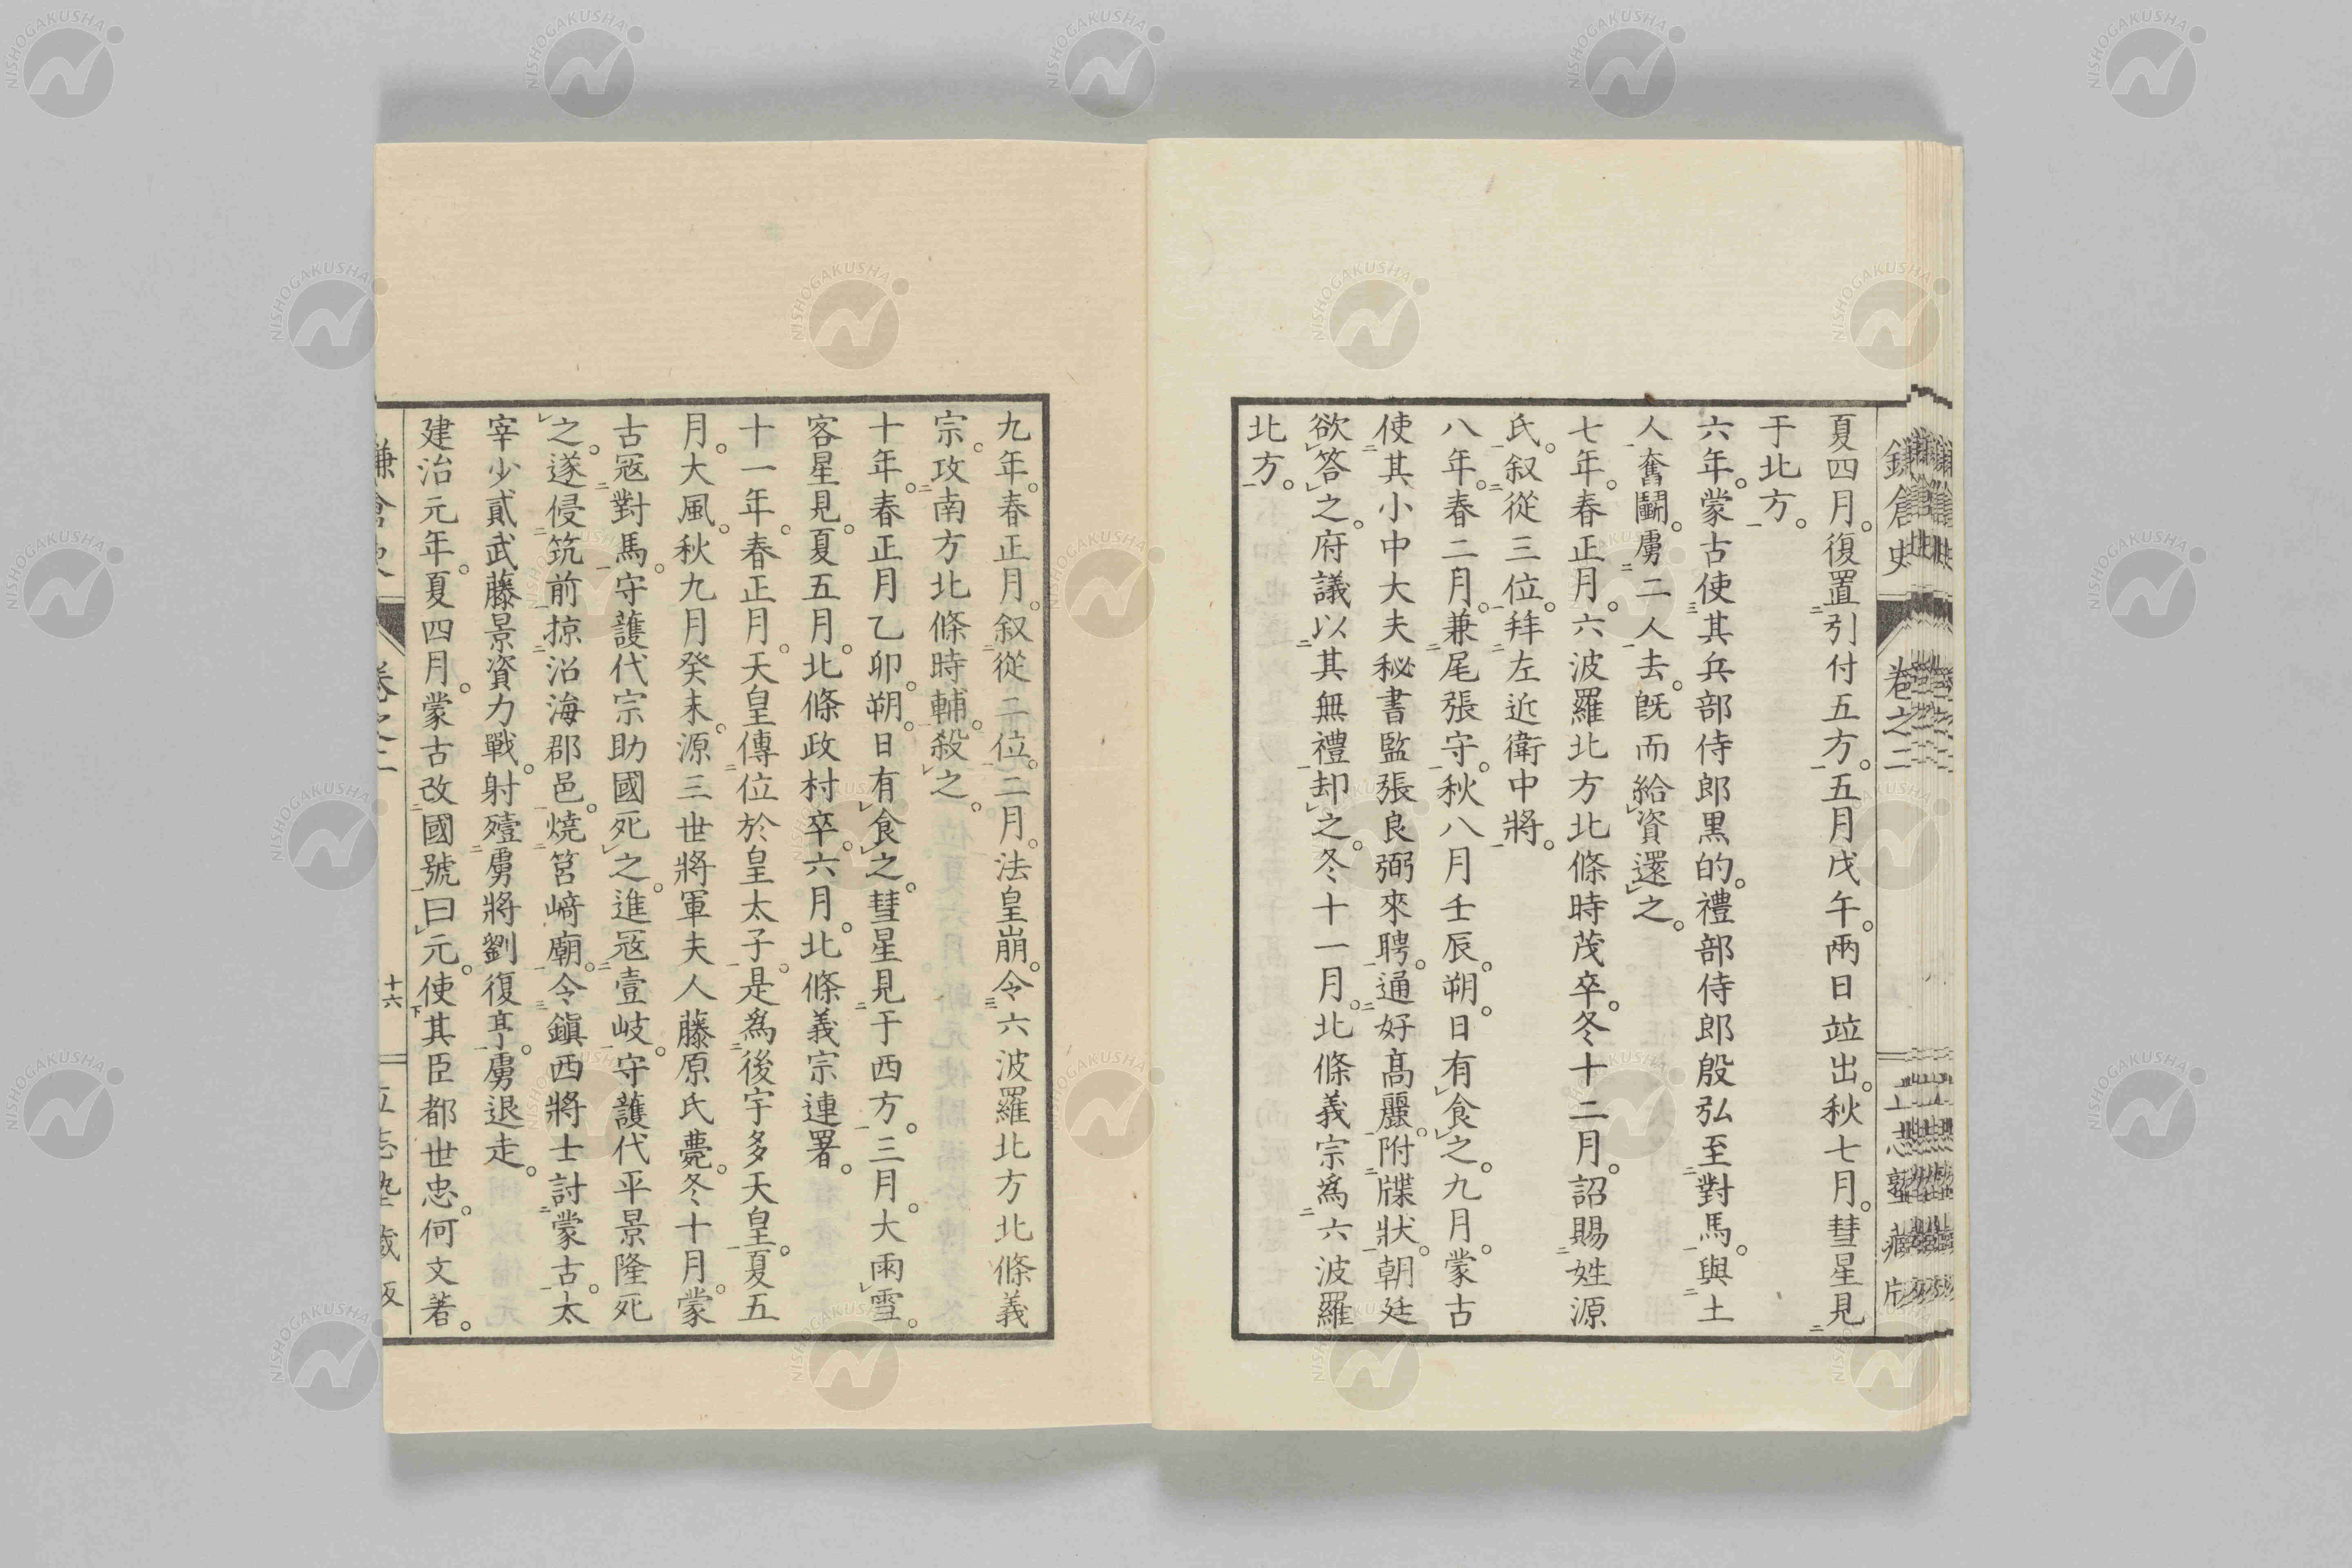 鎌倉史 卷之二
夏四月。復置引付五方。五月戊午。兩日竝出。秋七月。彗星見
于北方。
六年。蒙古使其兵部侍郎黒的。禮部侍郎殷弘至對馬。與土
人奮鬭。虜二人去。既而給資還之。
七年。春正月。六波羅北方北條時茂卒。冬十二月。詔賜姓源
氏。叙從三位。拜左近衛中將。
八年。春二月。兼尾張守。秋八月壬辰。朔。日有食之。九月。蒙古
使其小中大夫秘書監張良弼來聘。通好高麗。附牒狀。朝廷
欲答之。府議以其無禮却之。冬十一月。北條義宗爲六波羅
北方。
九年。春正月。叙從二位。二月。法皇崩。令六波羅北方北條義
宗。攻南方北條時輔。殺之。
十年。春正月乙卯。朔。日有食之。彗星見于西方。三月。大雨雪。
客星見。夏五月。北條政村卒。六月。北條義宗連署。
十一年。春正月。天皇傳位於皇太子。是爲後宇多天皇。夏五
月。大風。秋九月癸未。源三世將軍夫人藤原氏薨。冬十月。蒙
古冦對馬。守護代宗助國死之。進冦壹岐。守護代平景隆死
之。遂侵筑前。掠沿海郡邑。燒筥﨑廟。令鎭西將士討蒙古。太
宰少貳武藤景資力戰。射殪虜將劉復亨。虜退走。
建治元年。夏四月。蒙古改國號曰元。使其臣都世忠。何文著。
十六